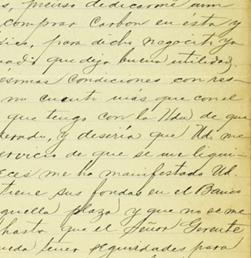 s, preciso dedicarme aum
comprar Carbón en esta y
para dicho negocio ya
que deja buena utilidad,
mas condiciones con res-
no cuento más que con el
que tengo con la Vda de que
y desería que Ud. me
servicio de que se me liqui-
eces me ha manifestado Ud.
tiene sus fondos en el Banco
quella plaza y que no se me
hasta que el Señor Gerente
ueda tener seguridades para